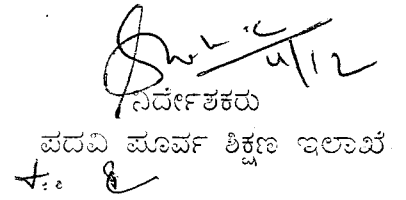 4/12
ನಿರ್ದೇಶಕರು
ಪದವಿ ಪೂರ್ವ ಶಿಕ್ಷಣ ಇಲಾಖೆ